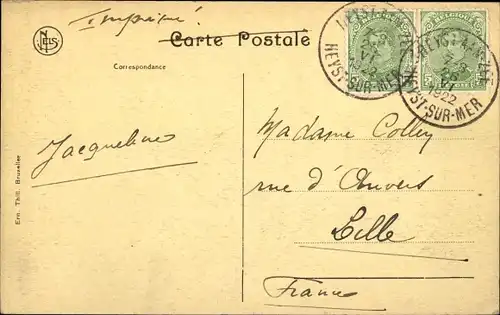 Imprimé
NELS
Carte Postale
Correspondance
BELGIQUE
HEYST-AAN-ZEE
VI
1922
HEYST-SUR-MER
HEYST-AAN-ZEE
VI
1922
HEYST-SUR-MER
5
5
Jacqueline
Madame Colley
rue d'Anvers
Lille
France
Ern. Thill, Bruxelles